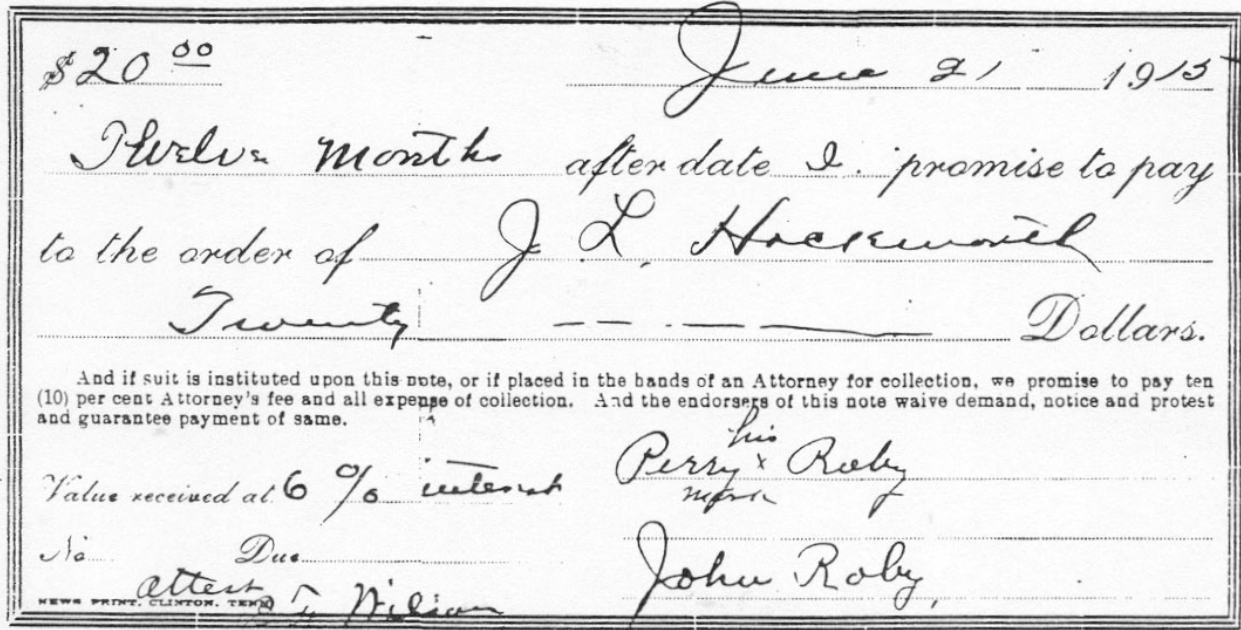 $20 00 June 21 1915
Twelve Months after date I. promise to pay
to the order of J. L. Hackworth
Twenty Dollars.
And if suit is instituted upon this note, or if placed in the hands of an Attorney for collection, we promise to pay ten
(10) per cent Attorney's fee and all expense of collection. And the endorsers of this note waive demand, notice and protest
and guarantee payment of same.
his
Perry x Roby
mark
Value received at 6 % interest
No. Due
John Roby,
attest
Wilson
NEWS PRINT, CLINTON, TENN